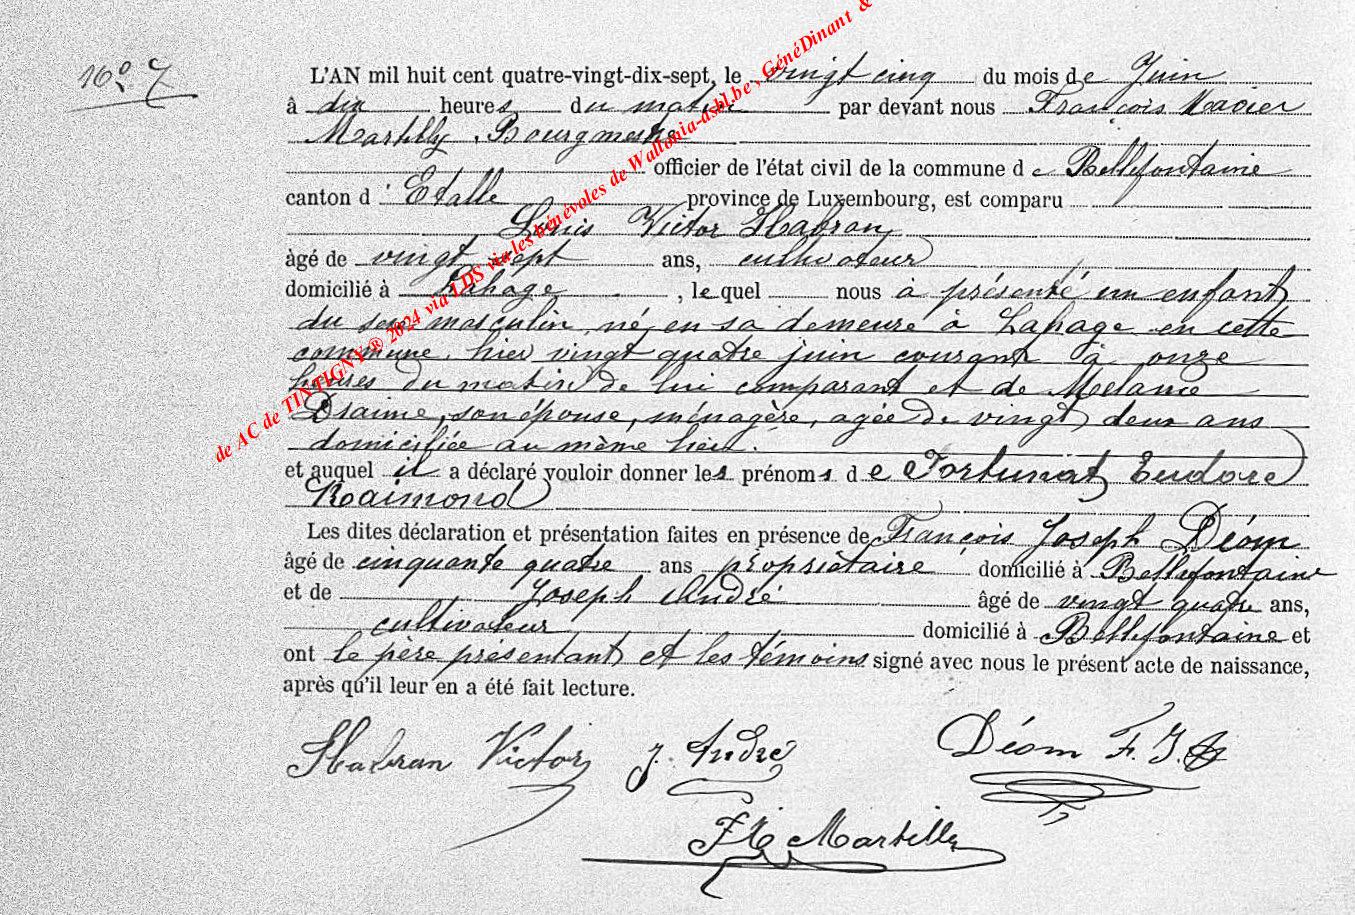 No 7
L'AN mil huit cent quatre-vingt-dix-sept, le vingt cinq du mois de Juin
à dix heures du matin par devant nous François Xavier
Martilly, Bourgmestre
officier de l'état civil de la commune de Bellefontaine
canton d'Etalle province de Luxembourg, est comparu
Louis Victor Habran
âgé de vingt sept ans, cultivateur
domicilié à Lahage, lequel nous a présenté un enfant
du sexe masculin, né en sa demeure à Lahage en cette
commune, hier vingt quatre juin courant à onze
heures du matin de lui comparant et de Mélanie
Draime, son épouse, ménagère, agée de vingt deux ans
domiciliée au même lieu.
et auquel il a déclaré vouloir donner les prénoms de Fortunat Eudore
Raimond
Les dites déclaration et présentation faites en présence de François Joseph Déom
âgé de cinquante quatre ans propriétaire domicilié à Bellefontaine
et de Joseph André âgé de vingt quatre ans,
cultivateur domicilié à Bellefontaine et
ont le père présentant et les témoins signé avec nous le présent acte de naissance,
après qu'il leur en a été fait lecture.
Habran Victor J. André Déom F. J.
Martilly
de AC de TINTIGNY ® 2024 via LDS via les bénévoles de Wallonia-asbl.be, GénéDinant &